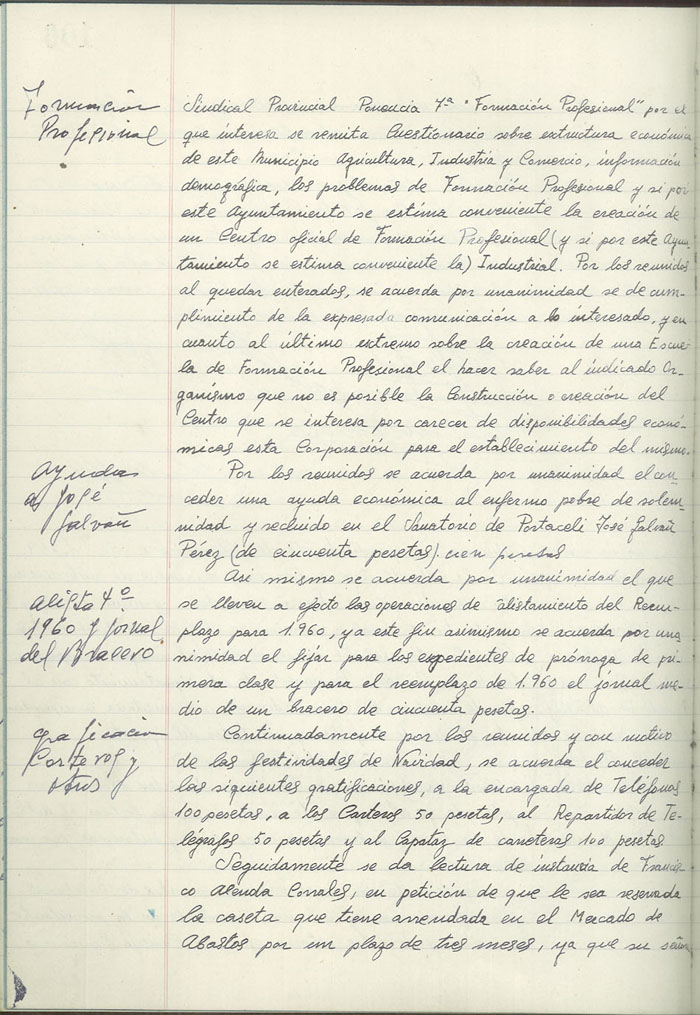 Formación
Profesional
Sindical Provincial Ponencia 7ª "Formación Profesional" por el
que interesa se remita Cuestionario sobre estructura económica
de este Municipio Agricultura, Industria y Comercio, información
demográfica, los problemas de Formación Profesional y si por
este Ayuntamiento se estima conveniente la creación de
un Centro oficial de Formación Profesional (y si por este Ayun-
tamiento se estima conveniente la) Industrial. Por los reunidos
al quedar enterados, se acuerda por unanimidad se de cum-
plimiento de la expresada comunicación a lo interesado, y en
cuanto al último extremo sobre la creación de una Escue-
la de Formación Profesional el hacer saber al indicado Or-
ganismo que no es posible la Construcción o creación del
Centro que se interesa por carecer de disponibilidades econó-
micas esta Corporación para el establecimiento del mismo.
Ayudas
a José
Galvañ
Por los reunidos se acuerda por unanimidad el con-
ceder una ayuda económica al enfermo pobre de solem-
nidad y recluido en el Sanatorio de Portaceli José Galvañ
Pérez (de cincuenta pesetas). cien pesetas
Alista 4º
1960 y jornal
del Bracero
Asi mismo se acuerda por unanimidad el que
se lleven a efecto las operaciones de alistamiento del Reem-
plazo para 1.960, y a este fin asimismo se acuerda por una-
nimidad el fijar para los expedientes de prórroga de pri-
mera clase y para el reemplazo de 1.960 el jornal me-
dio de un bracero de cincuenta pesetas.
gratificación
Carteros y
otros
Continuadamente por los reunidos y con motivo
de las festividades de Navidad, se acuerda el conceder
las siguientes gratificaciones, a la encargada de Teléfonos
100 pesetas, a los Carteros 50 pesetas, al Repartidor de Te-
légrafos 50 pesetas y al Capataz de carreteras 100 pesetas.
Seguidamente se da lectura de instancia de Francis-
co Alenda Corrales, en petición de que le sea reservada
la caseta que tiene arrendada en el Mercado de
Abastos por un plazo de tres meses, ya que su señora